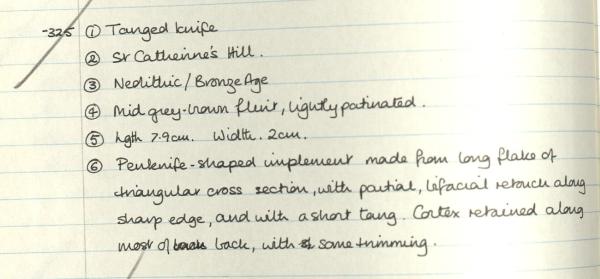 -325 ① Tanged knife
② St Catherine's Hill.
③ Neolithic/Bronze Age
④ Mid grey-brown flint, lightly patinated.
⑤ lgth 7.9cm. Width. 2cm.
⑥ Penknife-shaped implement made from long flake of
triangular cross section, with partial, bifacial retouch along
sharp edge, and with a short tang. Cortex retained along
most of back, with some trimming.